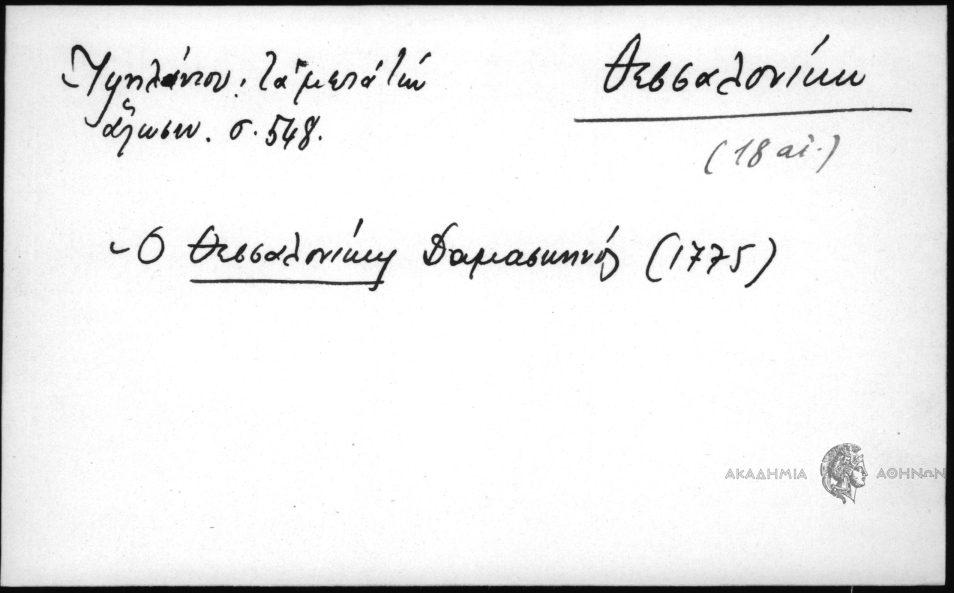 Ὑψηλάντου. τὰ μετὰ τὴν
ἅλωσιν. σ. 548.
Θεσσαλονίκη
(18 αἰ.)
- Ὁ Θεσσαλονίκης Δαμασκηνός (1775)
ΑΚΑΔΗΜΙΑ ΑΘΗΝΩΝ